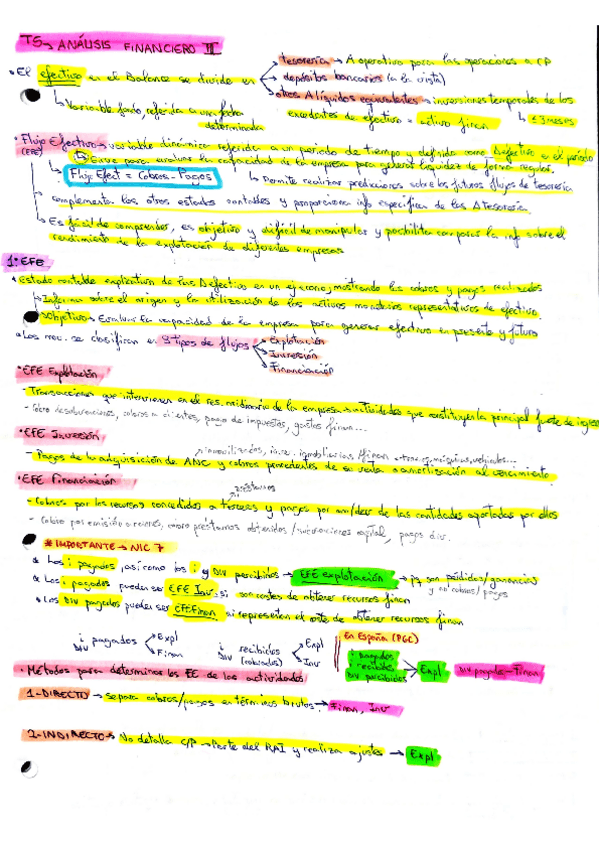 T5→ ANÁLISIS FINANCIERO II
• El efectivo en el Balance se divide en
tesorería → A operativo para las operaciones a CP
depósitos bancarios (a la vista)
otros A líquidos equivalentes → inversiones temporales de los
excedentes de efectivo = activo finan
≤ 3 meses
↳ Variable fondo, referida a una fecha
determinada
• Flujo Efectivo → variable dinámica referida a un periodo de tiempo y definido como Δefectivo en el periodo
(EFE)
Sirve para evaluar la capacidad de la empresa para generar liquidez de forma regular.
Flujo Efect = Cobros - Pagos
↳ Permite realizar predicciones sobre los futuros flujos de tesorería
complementa los otros estados contables y proporciona info específica de las Δ tesorería.
↳ Es fácil de comprender, es objetivo y difícil de manipular y posibilita comparar la inf sobre el
rendimiento de la explotación de diferentes empresas
1. EFE
• Estado contable explicativo de las Δefectivo en un ejercicio, mostrando los cobros y pagos realizados
↳ Informa sobre el origen y la utilización de los activos monetarios representativos de efectivo.
Objetivo → Evaluar la capacidad de la empresa para generar efectivo en presente y futuro
• Los mov. se clasifican en 3 tipos de flujos
Explotación
Inversión
Financiación
• EFE Explotación
- Transacciones que intervienen en el res. ordinario de la empresa → actividades que constituyen la principal fuente de ingresos
cobros a clientes, pago de impuestos, gastos finan...
• EFE Inversión
inmovilizados, inv. inmobiliarias / finan
- Pagos de la adquisición de ANC y cobros procedentes de su venta o amortización al vencimiento
• EFE Financiación
préstamos
- Cobros por los recursos concedidos a terceros y pagos por am/dev de las cantidades aportadas por ellos
- Cobro por emisión acciones, cobro préstamos obtenidos / capital, pagos div.
# IMPORTANTE → NIC 7
& Los i pagados, así como los i y DIV percibidos → EFE explotación → pq son pérdidas/ganancias
y no cobros/pagos
& Los i pagados pueden ser EFE Inv. si son costes de obtener recursos finan
& Los DIV pagados pueden ser EFE Finan si representan el coste de obtener recursos finan
i
DIV
pagados
Expl
Finan
i
DIV
recibidos
(cobrados)
Expl
Inv
En España (PGC)
i pagados
i recibidos
DIV percibidos
Expl
DIV pagados → Finan
• Métodos para determinar los FE de las actividades
1-DIRECTO → separa cobros/pagos en términos brutos → Finan, Inv
2-INDIRECTO → No detalla C/P → Parte del RAI y realiza ajustes → Expl